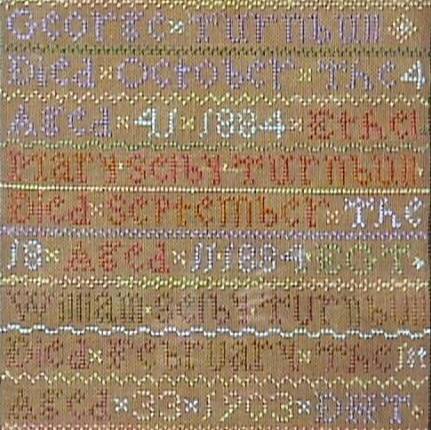 George × Turnbull
Died × October × The 4
Aged × 41 × 1884 × Ethel
Mary × Selby × Turnbull
Died × September × The
18 × Aged × 11 × 1884
William × Selby × Turnbull
Died × February × The 1st
Aged × 33 × 1903 × DHT